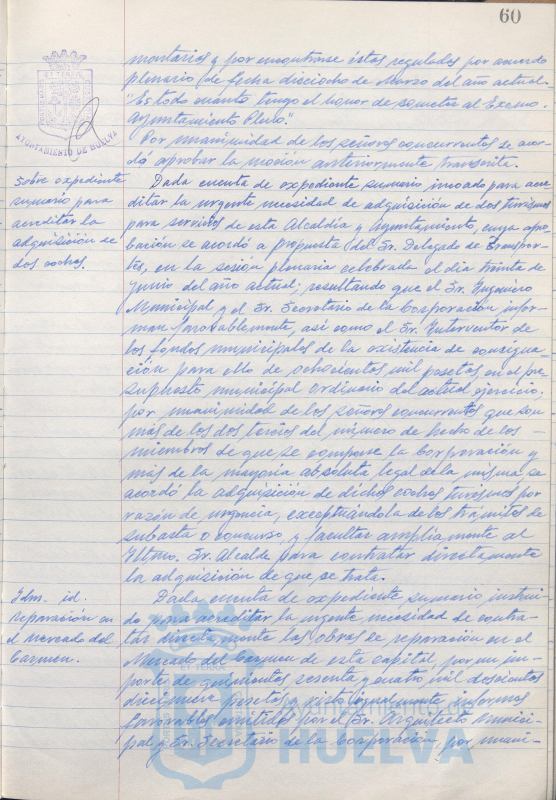 60
montarios y por encontrarse éstas regulados por acuerdo
plenario de fecha dieciocho de Marzo del año actual.
"Es todo cuanto tengo el honor de someter al Excmo.
Ayuntamiento Pleno."
AYUNTAMIENTO DE HUELVA
Por unanimidad de los señores concurrentes se acor-
dó aprobar la moción anteriormente transcrita.
Sobre expediente
sumario para
acreditar la
adquisición de
dos coches.
Dada cuenta de expediente sumario incoado para acre
ditar la urgente necesidad de adquisición de dos turismos
para servicios de esta Alcaldía y Ayuntamiento, cuya apro-
bación se acordó a propuesta del Sr. Delegado de Transpor-
tes, en la sesión plenaria celebrada el día treinta de
junio del año actual; resultando que el Sr. Ingeniero
Municipal y el Sr. Secretario de la Corporación infor-
man favorablemente, así como el Sr. Interventor de
los fondos municipales de la existencia de consigna-
ción para ello de ochocientas mil pesetas en el pre
supuesto municipal ordinario del actual ejercicio,
por unanimidad de los señores concurrentes que son
más de los dos tercios del número de hecho de los —
miembros de que se compone la Corporación y
más de la mayoría absoluta legal de la misma se
acordó la adquisición de dichos coches turismos por
razón de urgencia, exceptuándola de los trámites de
subasta o concurso, y facultar ampliamente al
Iltmo. Sr. Alcalde para contratar directamente
la adquisición de que se trata.
Idm. id.
reparación en
el Mercado del
Carmen.
Dada cuenta de expediente sumario instrui-
do para acreditar la urgente necesidad de contra-
tar directamente las obras de reparación en el
Mercado del Carmen de esta capital, por un im-
porte de quinientas sesenta y cuatro mil doscientas
diecinueve pesetas y vistos igualmente informes
favorables emitidos por el Sr. Arquitecto Munici-
pal y Sr. Secretario de la Corporación, por unani-
Ayuntamiento de
HUELVA